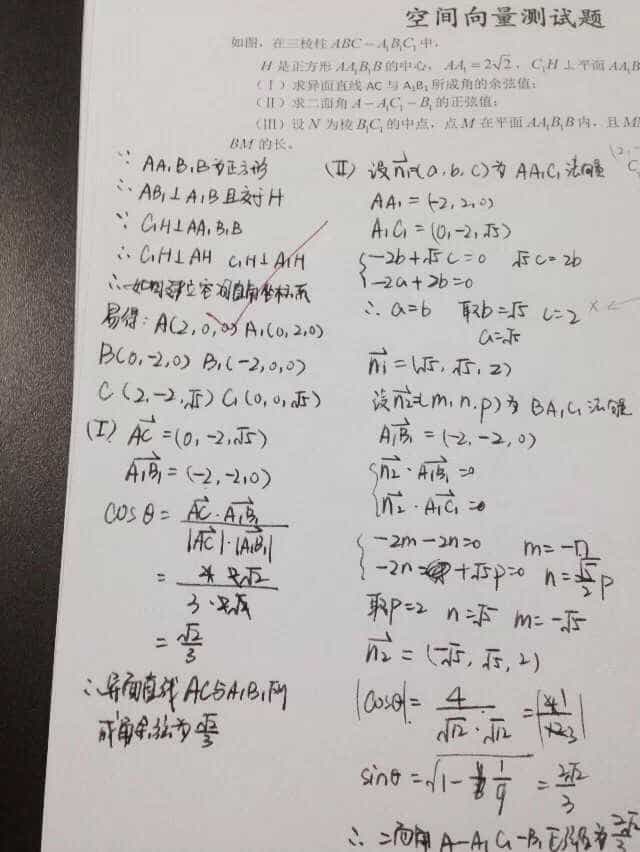 空间向量测试题
如图，在三棱柱 ABC－A₁B₁C₁ 中，
H 是正方形 AA₁B₁B 的中心，AA₁＝2√2，C₁H⊥平面 AA₁B
（Ⅰ）求异面直线 AC 与 A₁B₁ 所成角的余弦值；
（Ⅱ）求二面角 A－A₁C₁－B₁ 的正弦值；
（Ⅲ）设 N 为棱 B₁C₁ 的中点，点 M 在平面 AA₁B₁B 内，且 M
BM 的长。
∵ AA₁B₁B为正方形
∴ AB₁⊥A₁B且交于H
∵ C₁H⊥AA₁B₁B
∴ C₁H⊥AH C₁H⊥A₁H
∴如图建立空间直角坐标系
易得: A(2,0,0) A₁(0,2,0)
B(0,-2,0) B₁(-2,0,0)
C(2,-2,√5) C₁(0,0,√5)
(Ⅰ) AC=(0,-2,√5)
A₁B₁=(-2,-2,0)
cosθ= AC·A₁B₁/|AC|·|A₁B₁|
=
= √2/3
∴异面直线AC与A₁B₁所
成角余弦为√2/3
(Ⅱ) 设n₁=(a,b,c)为AA₁C₁法向量
AA₁=(-2,2,0)
A₁C₁=(0,-2,√5)
-2b+√5c=0 √5c=2b
-2a+2b=0
∴ a=b 取b=√5 c=2
a=√5
n₁=(√5,√5,2)
设n₂=(m,n,p)为BA₁C₁法向量
A₁B₁=(-2,-2,0)
n₂·A₁B₁=0
n₂·A₁C₁=0
-2m-2n=0 m=-n
-2n+√5p=0 n=√5/2 p
取p=2 n=√5 m=-√5
n₂=(-√5,√5,2)
|cosθ|= 4/√12·√12 =
sinθ=√1-1/9 = 2√2/3
∴二面角A-A₁C₁-B₁正弦值为2√2/3